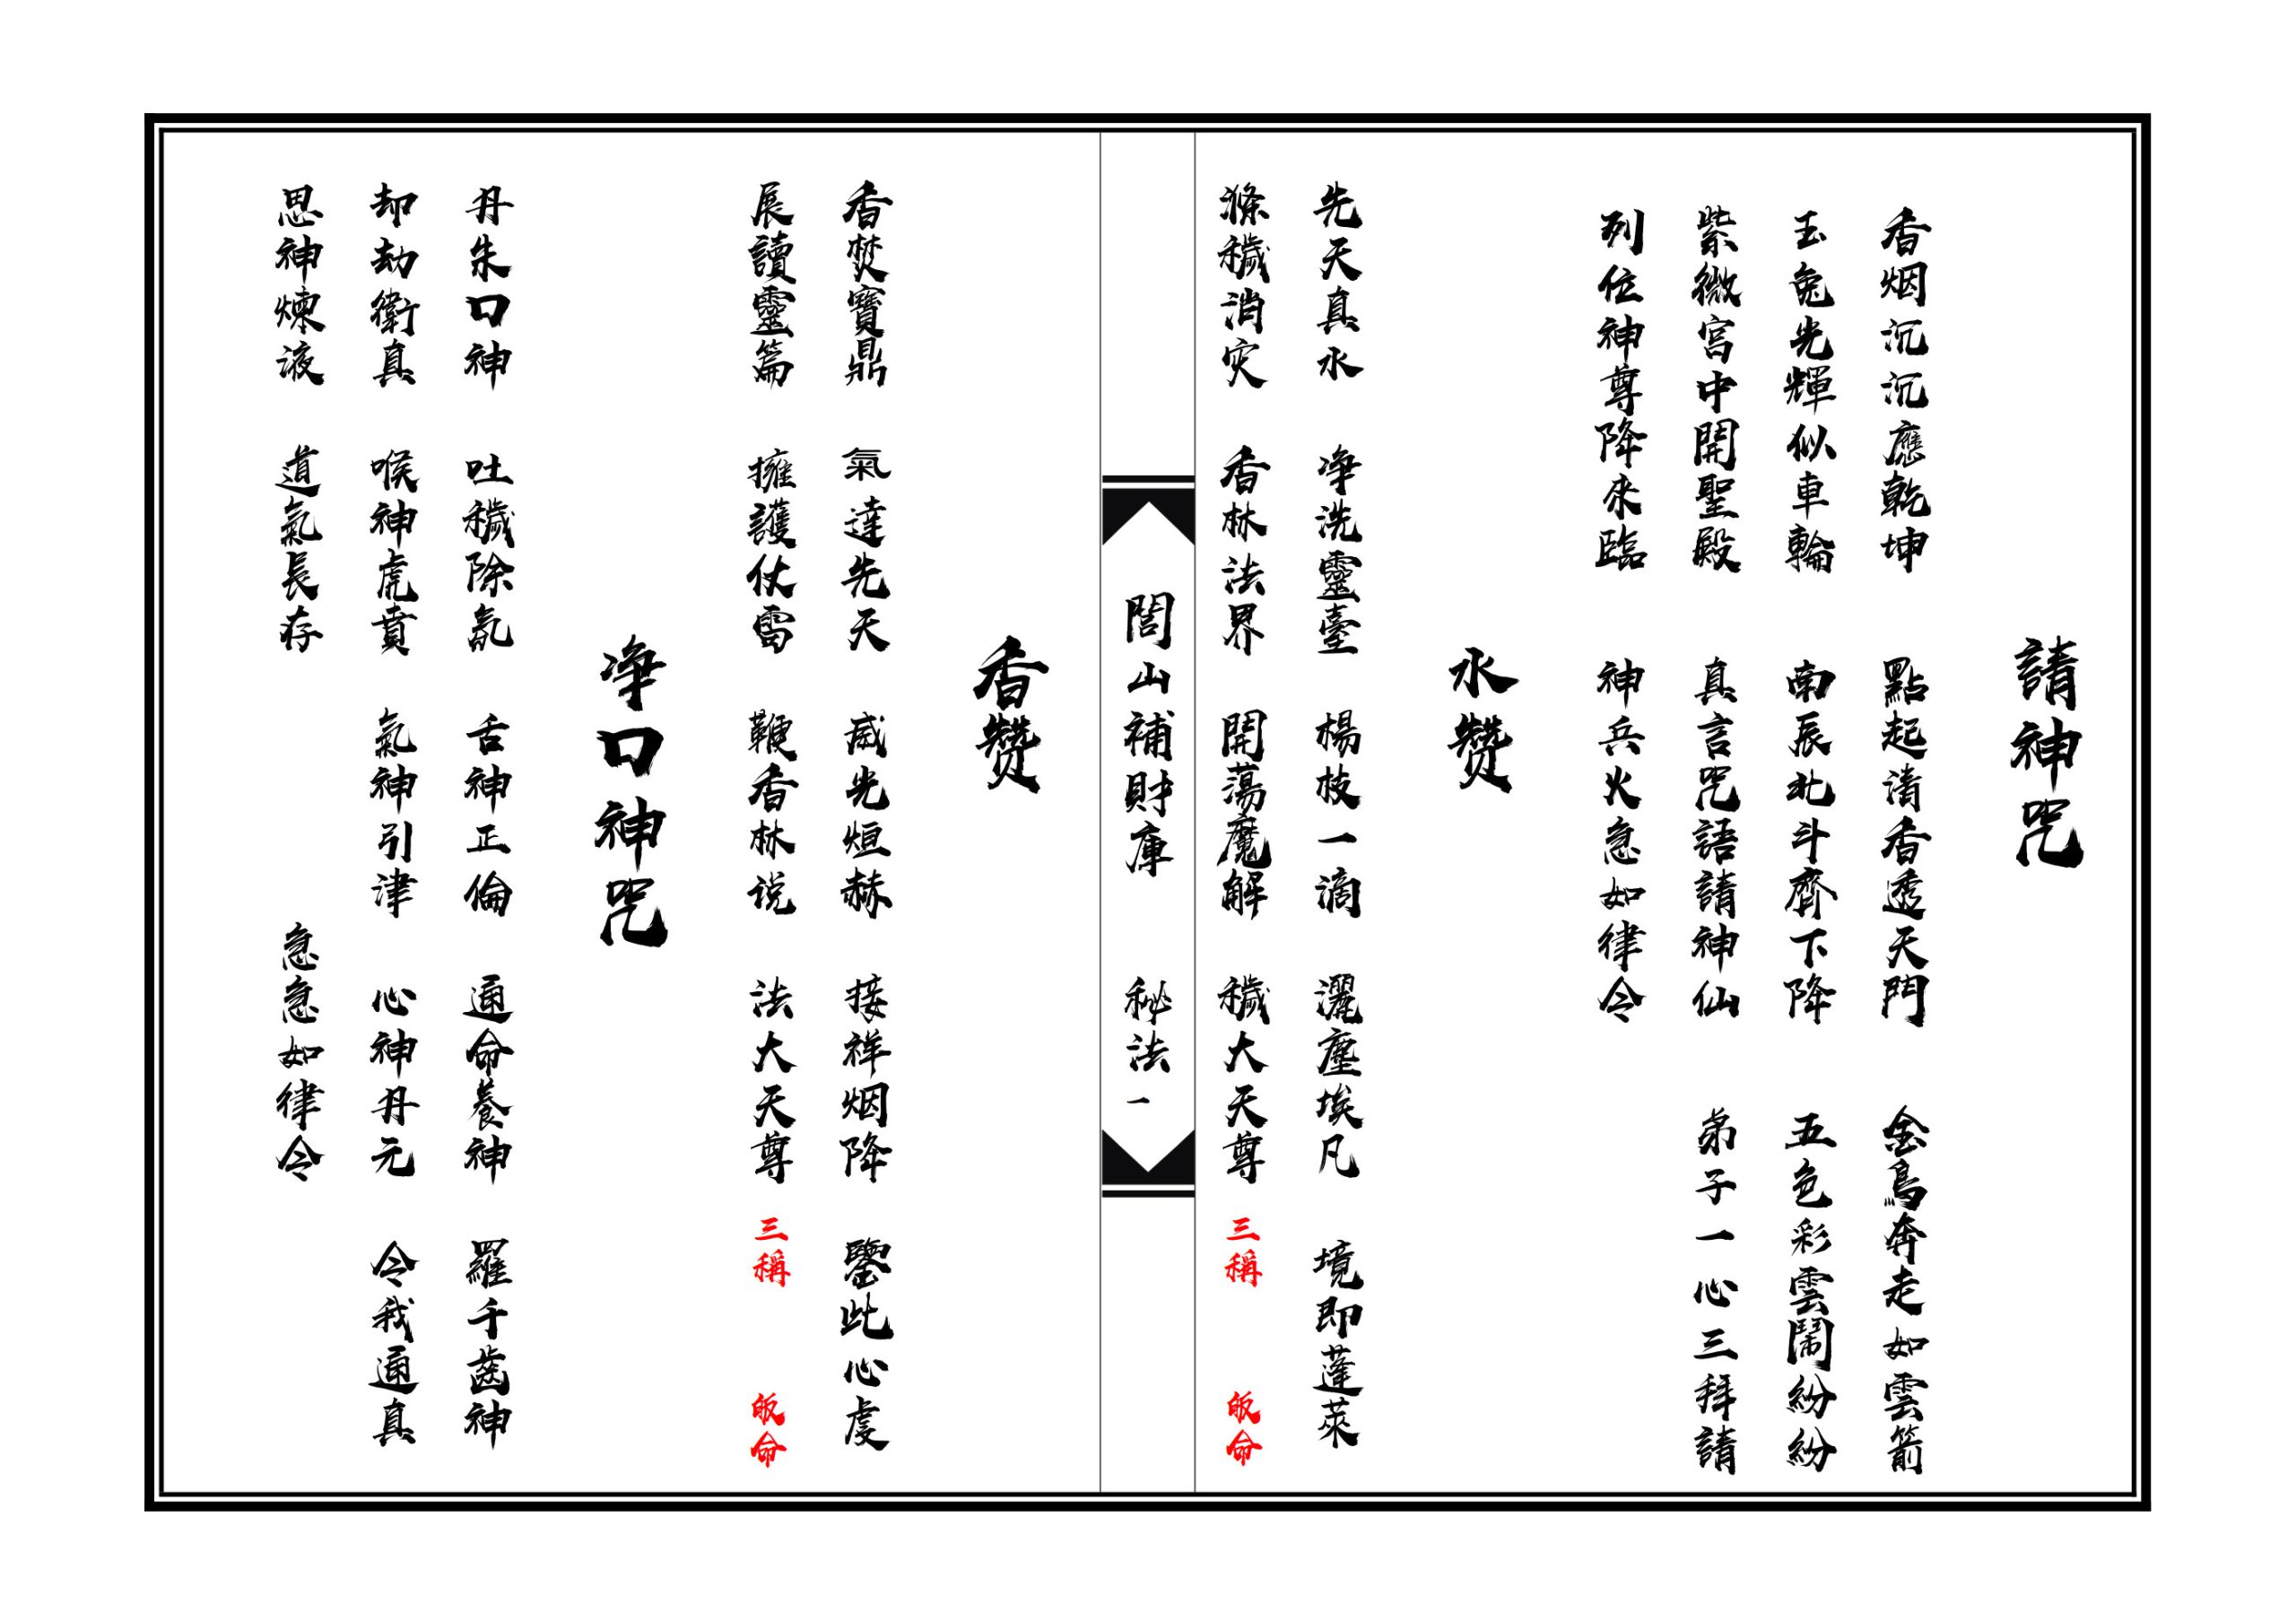 請神咒
香烟沉沉應乾坤 點起清香透天門 金鳥奔走如雲箭
玉兔光輝似車輪 南辰北斗齊下降 五色彩雲鬧紛紛
紫微宮中開聖殿 真言咒語請神仙 弟子一心三拜請
列位神尊降來臨 神兵火急如律令
水赞
先天真水 净洗靈臺 楊枝一滴 灑塵埃凡 境即蓬萊
滌穢消灾 香林法界 開蕩魔解 穢大天尊 三稱 皈命
閭山補財庫 秘法一
香赞
香焚寶鼎 氣達先天 威光烜赫 接祥烟降 鑒此心虔
展讀靈篇 擁護仗雷 鞭香林说 法大天尊 三稱 皈命
净口神咒
丹朱口神 吐穢除氛 舌神正倫 通命養神 羅千齒神
却劫衛真 喉神虎賁 氣神引津 心神丹元 令我通真
思神煉液 道氣長存 急急如律令